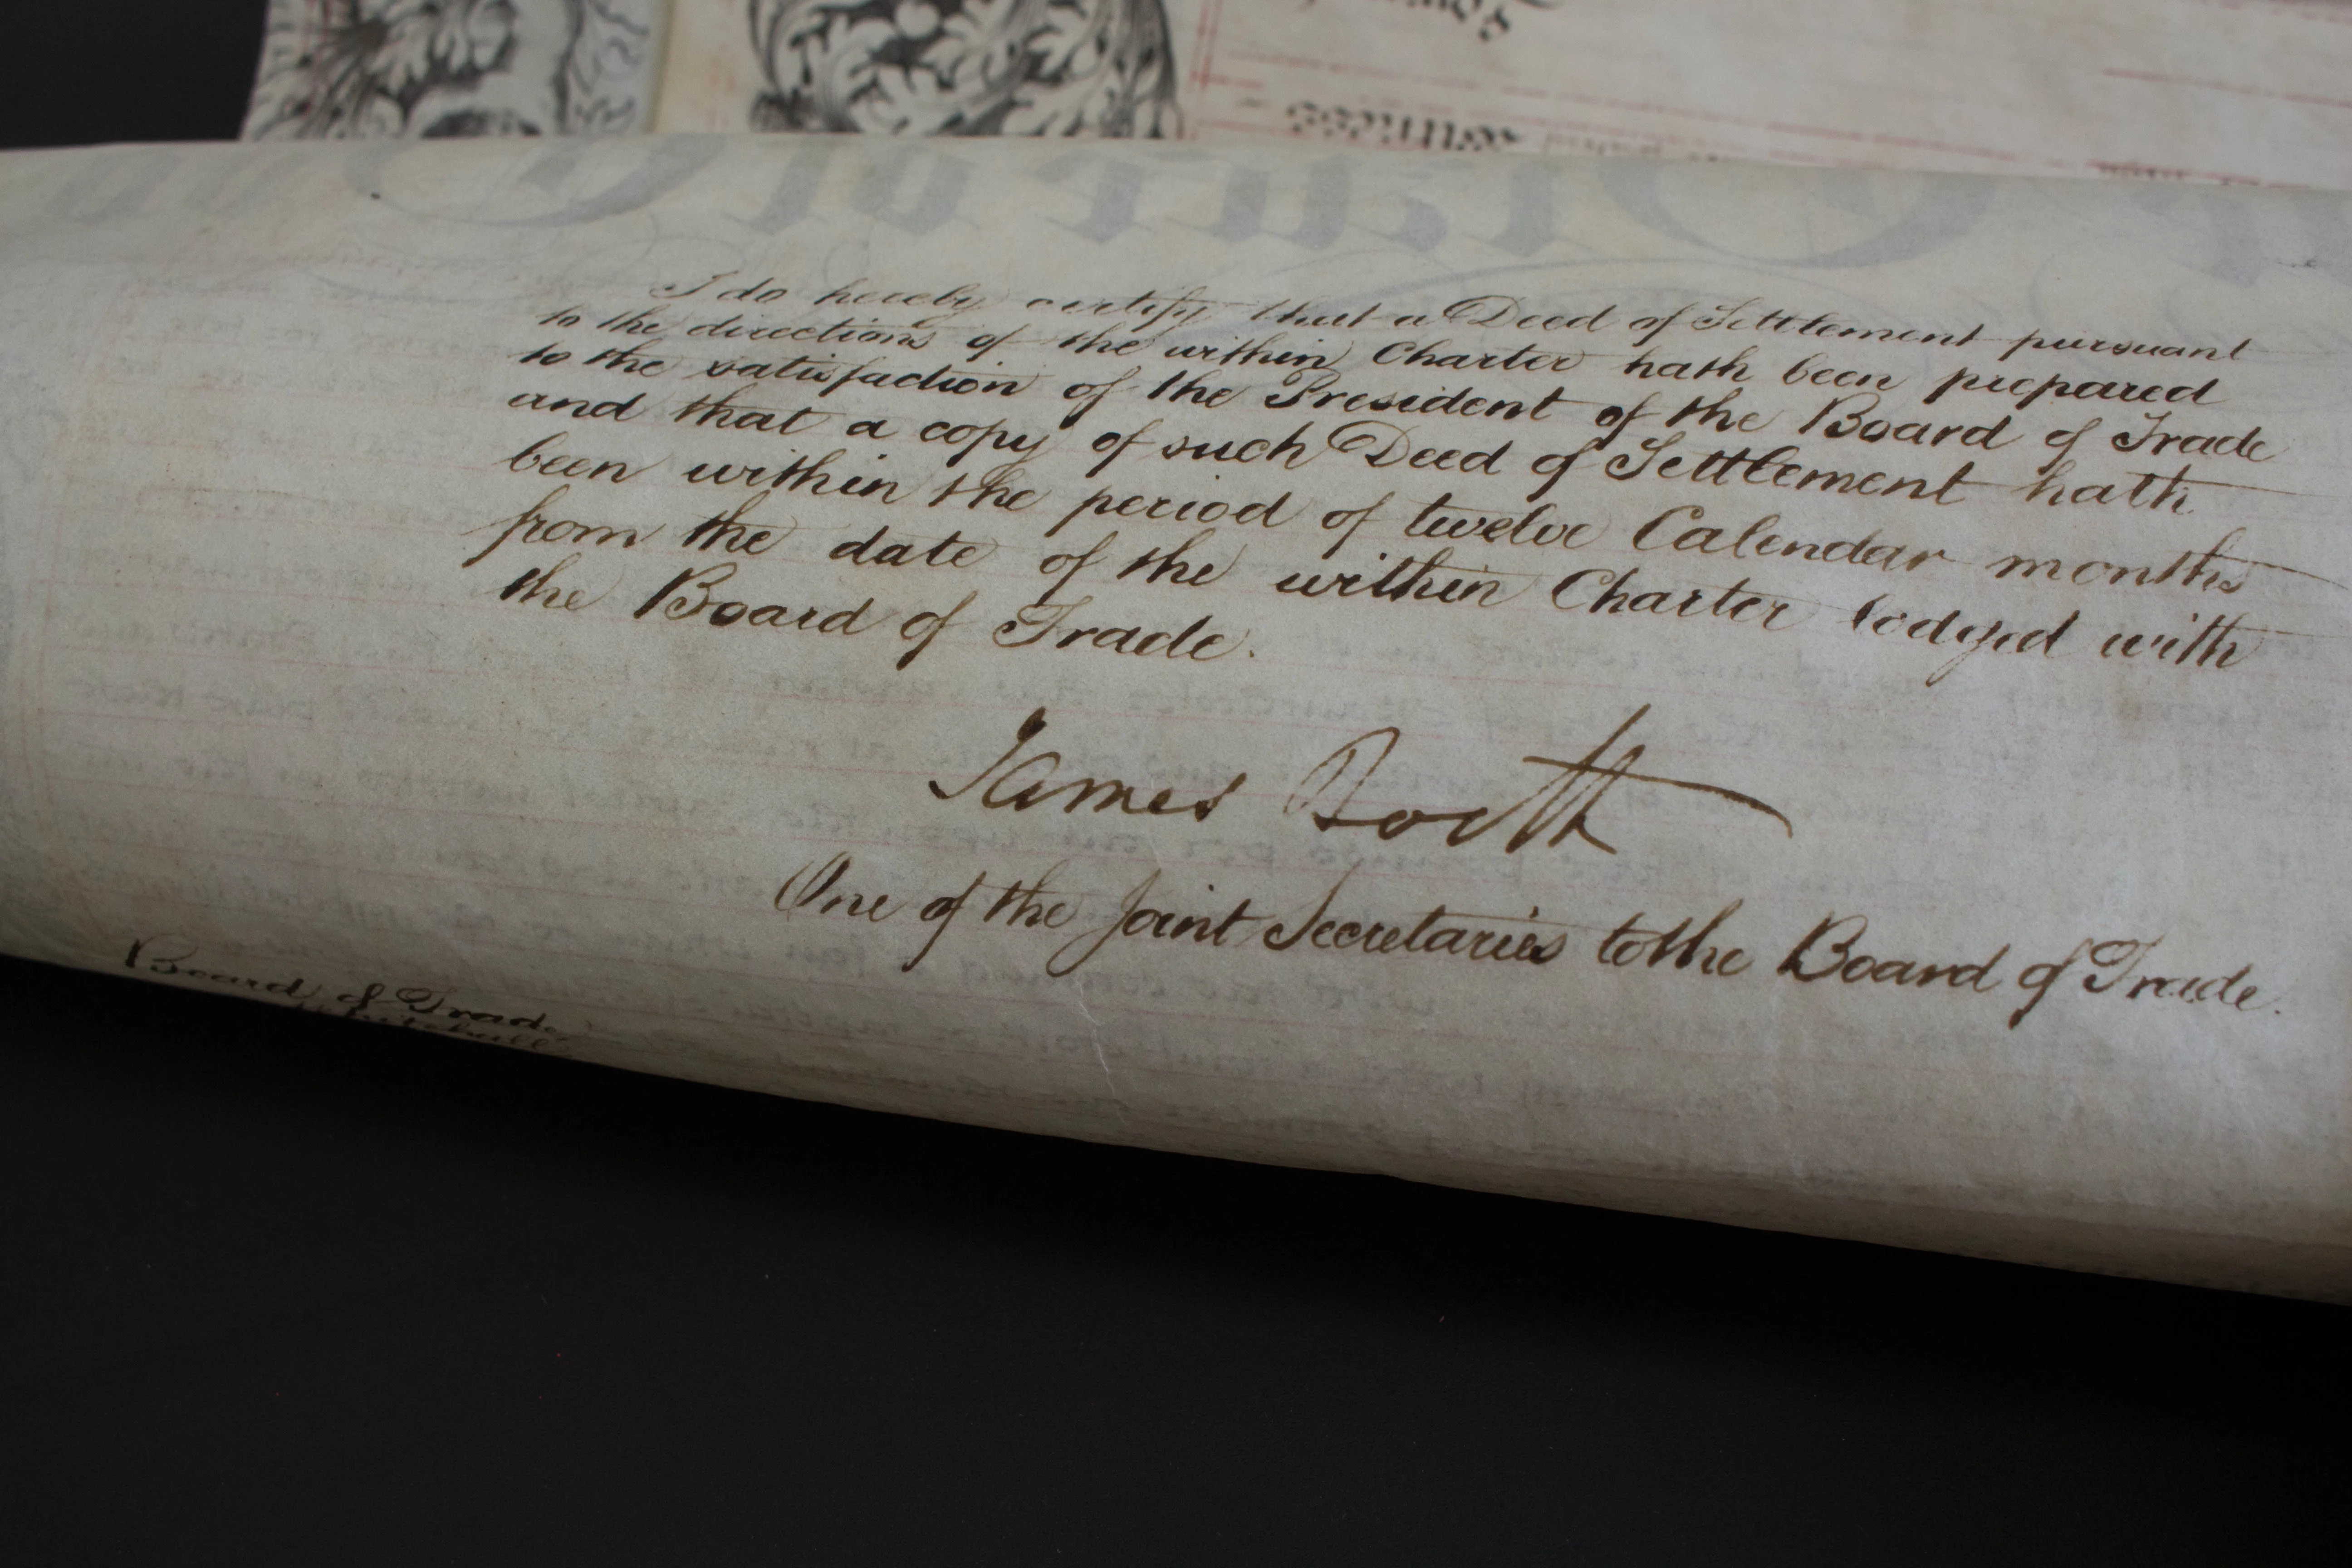 I do hereby certify that a Deed of Settlement pursuant
to the directions of the within Charter hath been prepared
to the satisfaction of the President of the Board of Trade
and that a copy of such Deed of Settlement hath
been within the period of twelve Calendar months
from the date of the within Charter lodged with
the Board of Trade.
James Booth
One of the Joint Secretaries to the Board of Trade.
Board of Trade
Whitehall